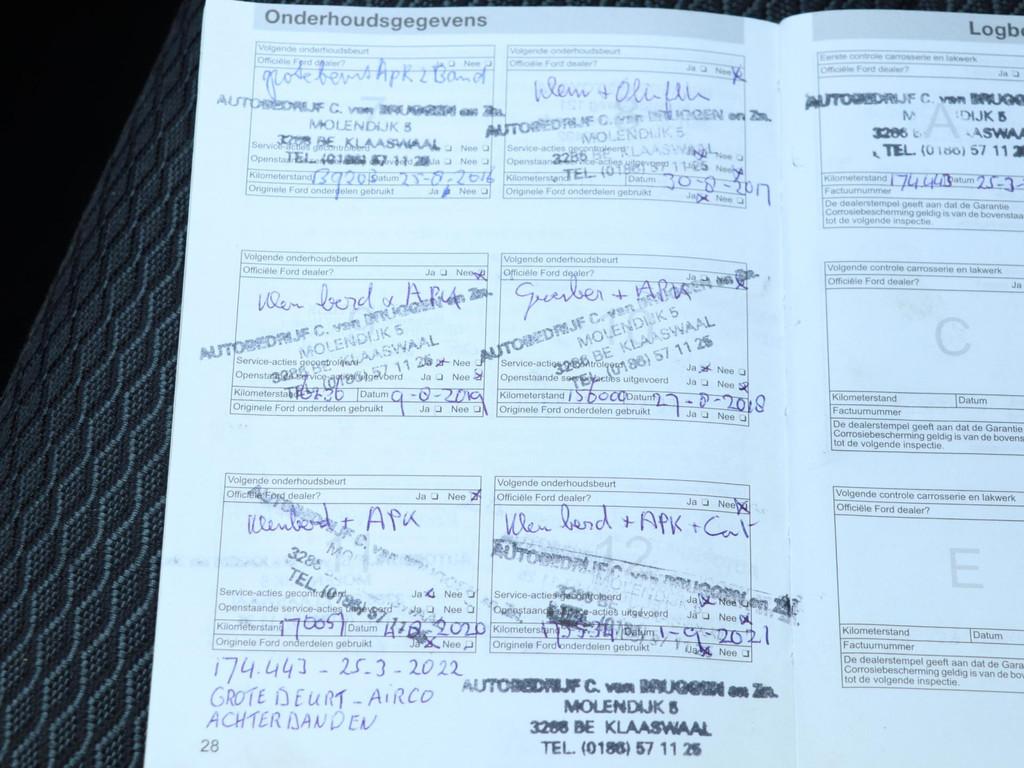 Onderhoudsgegevens
Volgende onderhoudsbeurt
Officiële Ford dealer? Ja Nee
grote beurt APK 2 Band
AUTOBEDRIJF C. van BRUGGEN en Zn.
MOLENDIJK 5
3286 BE KLAASWAAL
TEL. (0186) 57 11 25
Service-acties gecontroleerd Ja Nee
Kilometerstand Datum 25-8-2016
Originele Ford onderdelen gebruikt Ja Nee
Volgende onderhoudsbeurt
Officiële Ford dealer? Ja Nee
Klein +
AUTOBEDRIJF C. van BRUGGEN en Zn.
MOLENDIJK 5
3286 BE KLAASWAAL
TEL. (0186) 57 11 25
Service-acties gecontroleerd Nee
Openstaande service-acties uitgevoerd Nee
Kilometerstand Datum 30-8-2017
Originele Ford onderdelen gebruikt Ja Nee
Volgende onderhoudsbeurt
Officiële Ford dealer? Ja Nee
APK
AUTOBEDRIJF C. van BRUGGEN en Zn.
MOLENDIJK 5
3286 BE KLAASWAAL
TEL. (0186) 57 11 25
Service-acties gecontroleerd Ja Nee
Openstaande service-acties uitgevoerd Ja Nee
Kilometerstand Datum 9-8-2019
Originele Ford onderdelen gebruikt Ja Nee
Volgende onderhoudsbeurt
Officiële Ford dealer? Ja
+ APK
AUTOBEDRIJF C. van BRUGGEN en Zn.
MOLENDIJK 5
3286 BE KLAASWAAL
TEL. (0186) 57 11 25
Service-acties gecontroleerd Ja Nee
Openstaande service-acties uitgevoerd Ja Nee
Kilometerstand 156000 Datum 27-8-2018
Originele Ford onderdelen gebruikt Ja Nee
Volgende onderhoudsbeurt
Officiële Ford dealer? Ja Nee
+ APK
3286
TEL. (0186) 57
Service-acties gecontroleerd Ja Nee
Openstaande service-acties uitgevoerd Ja Nee
Kilometerstand 170051 Datum 2020
Originele Ford onderdelen gebruikt Ja Nee
Volgende onderhoudsbeurt
Officiële Ford dealer? Ja Nee
Klein + APK +
12
AUTOBEDRIJF C. van BRUGGEN en Zn.
Service-acties gecontroleerd Ja Nee
Openstaande service-acties uitgevoerd Ja Nee
Kilometerstand Datum 1-9-2021
Originele Ford onderdelen gebruikt Ja Nee
174.443 - 25-3-2022
GROTE BEURT - AIRCO
ACHTERBANDEN
AUTOBEDRIJF C. van BRUGGEN en Zn.
MOLENDIJK 5
3286 BE KLAASWAAL
TEL. (0186) 57 11 25
28
Logbo
Eerste controle carrosserie en lakwerk
Officiële Ford dealer? Ja
A
AUTOBEDRIJF C. van BRUGG
DIJK 5
3286 B KLAASWA
TEL. (0186) 57 11 2
Kilometerstand 174.443 Datum 25-3-
Factuurnummer
De dealerstempel geeft aan dat de Garantie
Corrosiebescherming geldig is van de bovenstaa
tot de volgende inspectie.
Volgende controle carrosserie en lakwerk
Officiële Ford dealer? Ja
C
Kilometerstand Datum
Factuurnummer
De dealerstempel geeft aan dat de Garantie
Corrosiebescherming geldig is van de bovens
tot de volgende inspectie.
Volgende controle carrosserie en lakwerk
Officiële Ford dealer?
E
Kilometerstand Datum
Factuurnummer
De dealerstempel geeft aan dat de Gara
Corrosiebescherming geldig is van de bov
tot de volgende inspectie.